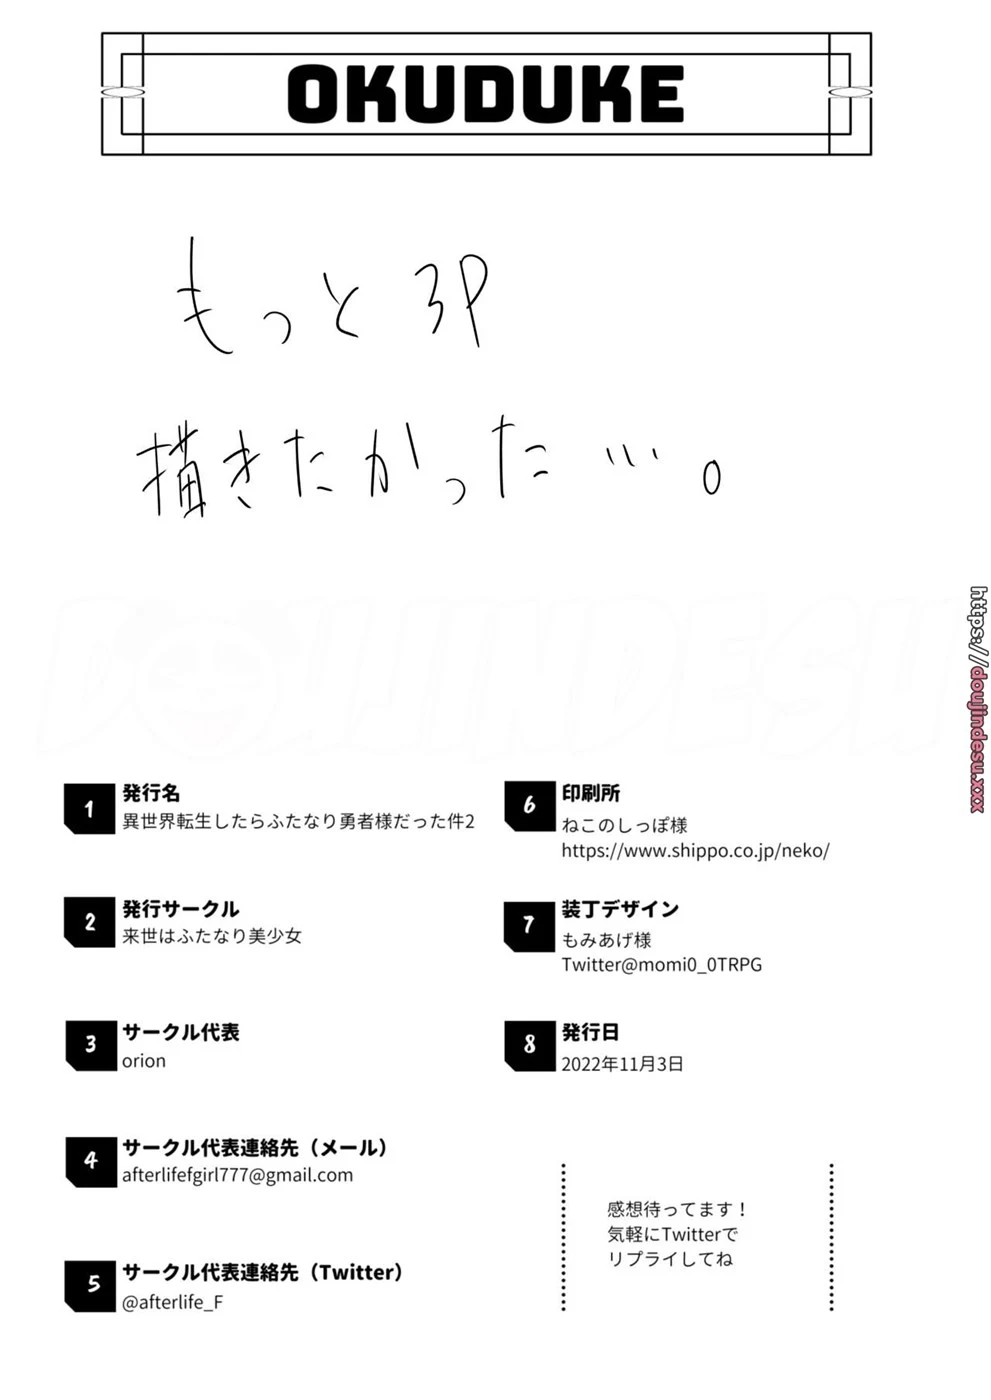 OKUDUKE
もっと 3P
描きたかった…。
https://doujindesu.xxx
DOUJINDESU
1
発行名
異世界転生したらふたなり勇者様だった件2
2
発行サークル
来世はふたなり美少女
3
サークル代表
orion
4
サークル代表連絡先（メール）
afterlifefgirl777@gmail.com
5
サークル代表連絡先（Twitter）
@afterlife_F
6
印刷所
ねこのしっぽ様
https://www.shippo.co.jp/neko/
7
装丁デザイン
もみあげ様
Twitter@momi0_0TRPG
8
発行日
2022年11月3日
感想待ってます！
気軽にTwitterで
リプライしてね